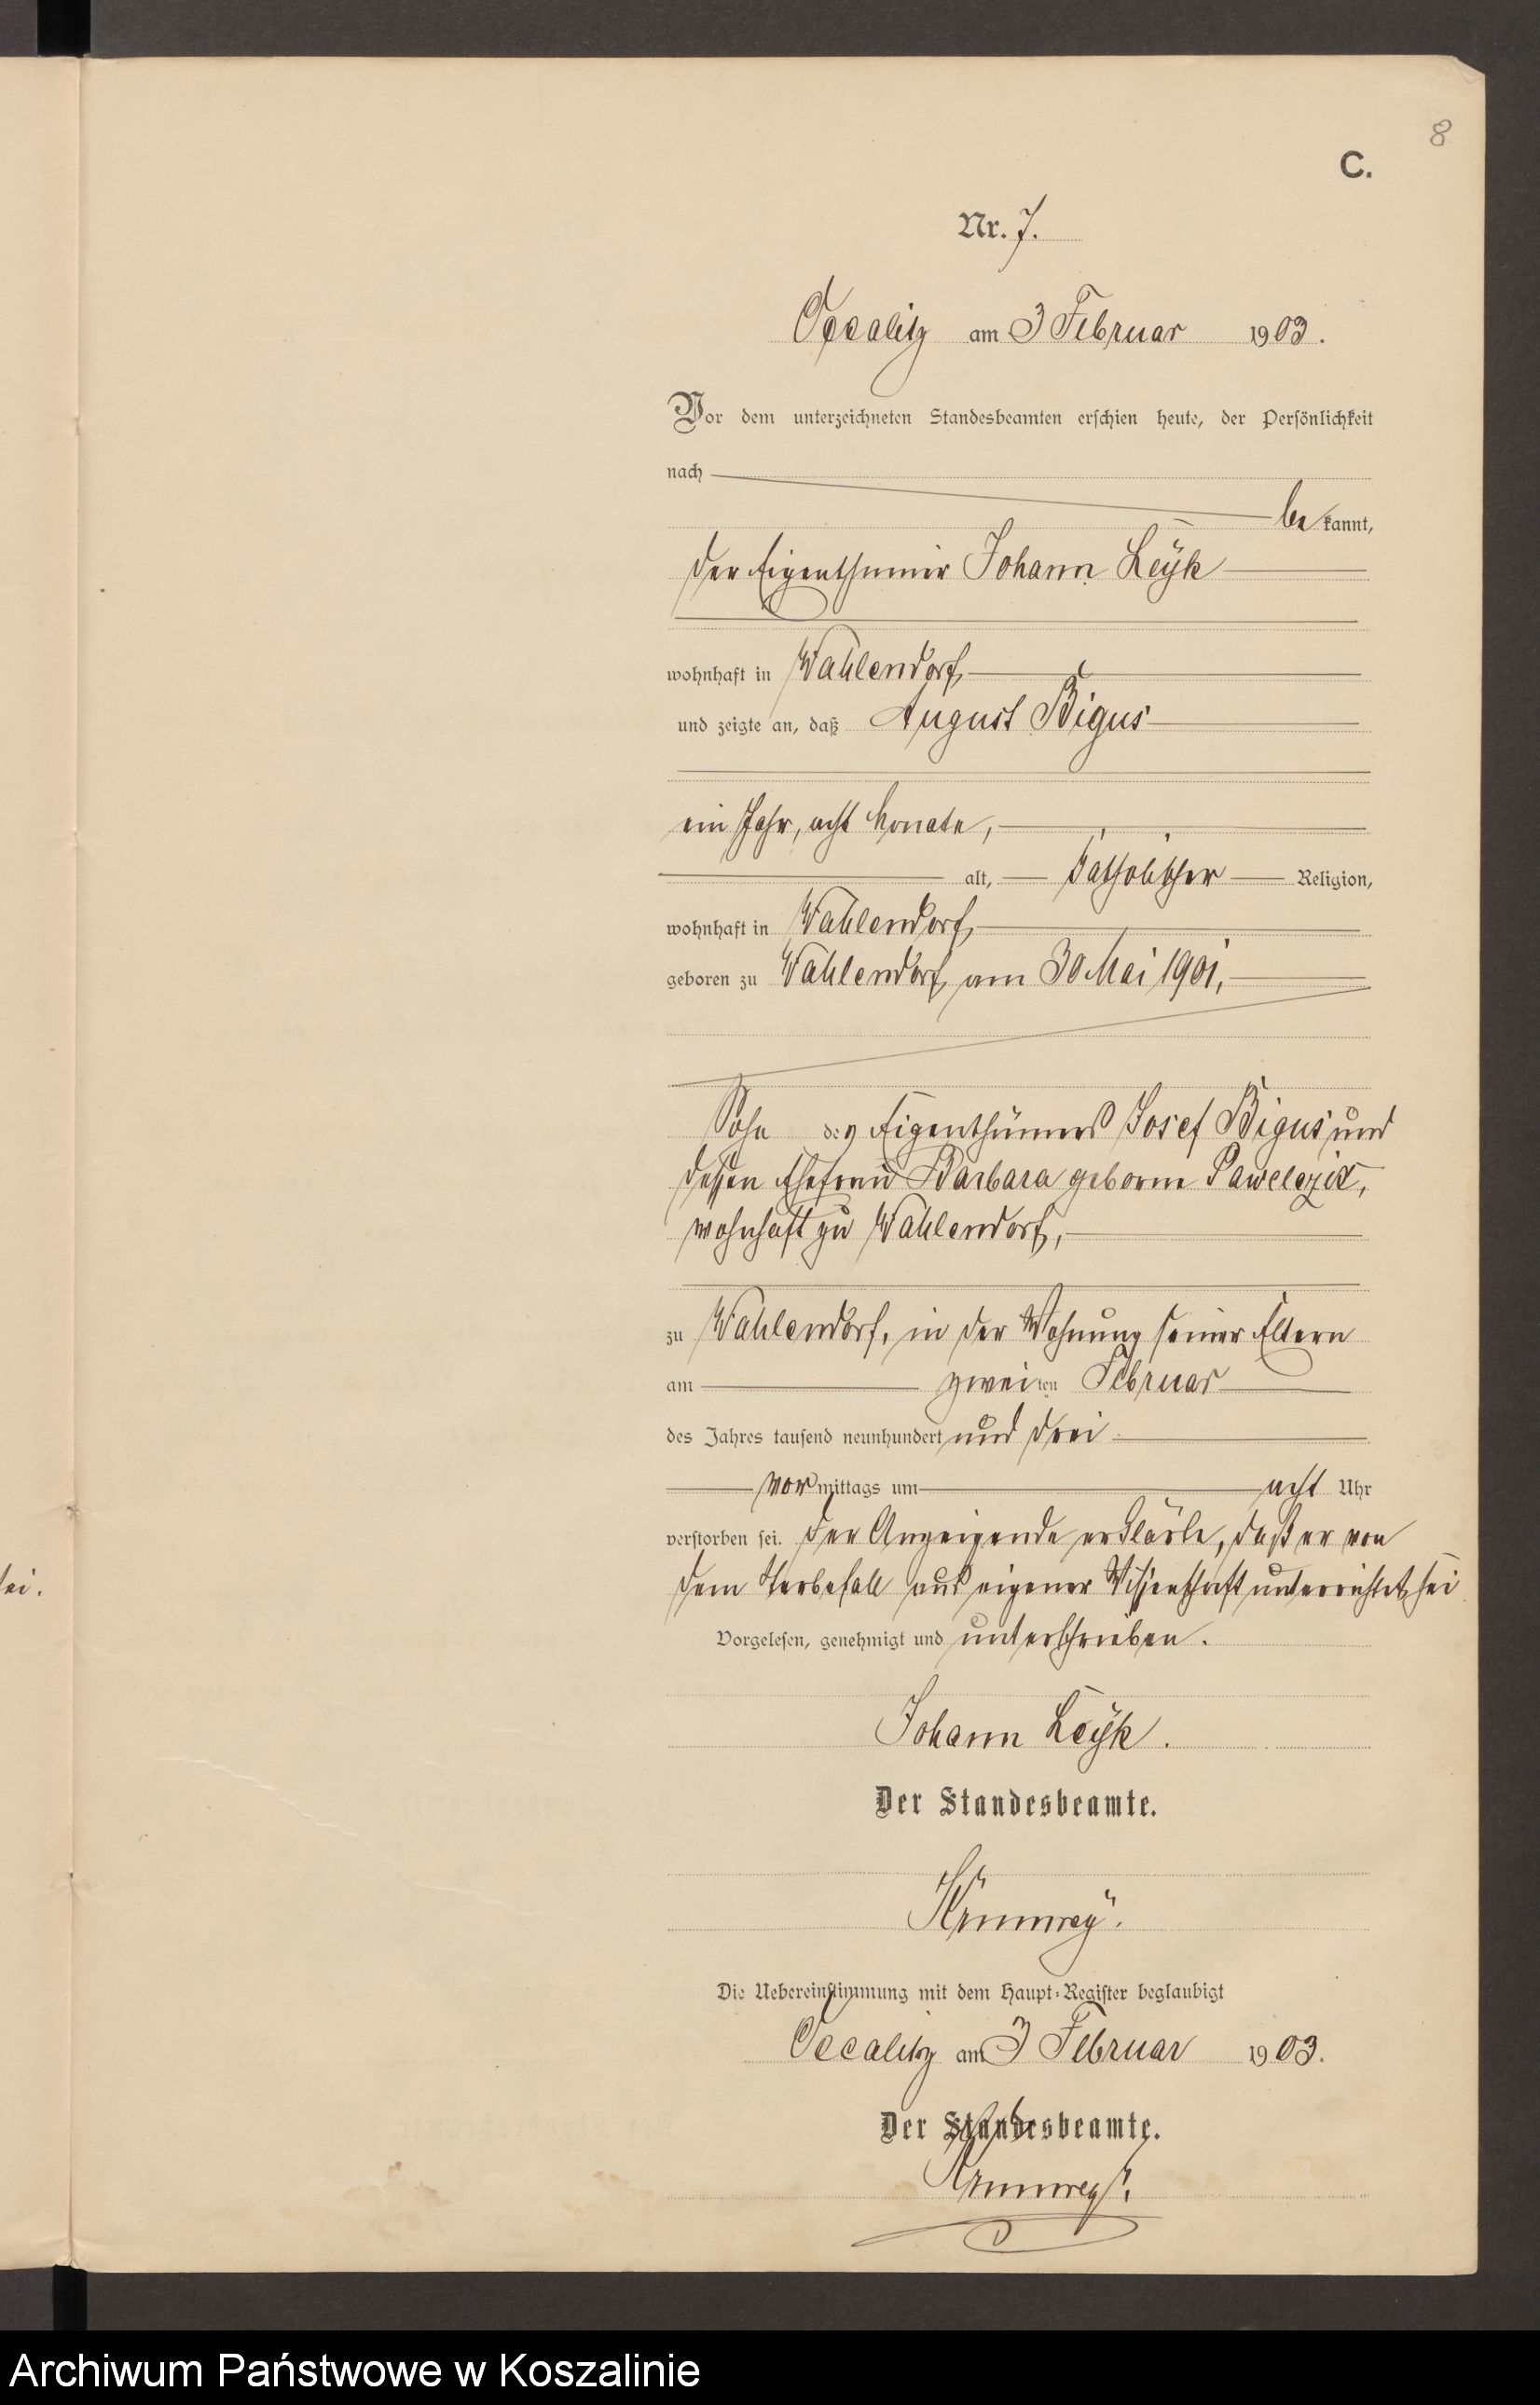 8
C.
Nr. 7.
Occalitz am 3 Februar 1903.
Vor dem unterzeichneten Standesbeamten erschien heute, der Persönlichkeit
nach
be kannt,
der Eigenthümer Johann Leÿk
wohnhaft in Wahlendorf,
und zeigte an, daß August Bigus
ein Jahr, acht Monate,
alt, katholischer Religion,
wohnhaft in Wahlendorf,
geboren zu Wahlendorf, am 30 Mai 1901,
Sohn des Eigenthümers Josef Bigus und
dessen Ehefrau Barbara geborne Pawelczik,
wohnhaft zu Wahlendorf,
zu Wahlendorf, in der Wohnung seiner Eltern
am zwei ten Februar
des Jahres tausend neunhundert und drei
vor mittags um acht Uhr
verstorben sei. Der Anzeigende erklärte, daß er von
dem Sterbefall aus eigener Wissenschaft unterrichtet sei
sei.
Vorgelesen, genehmigt und unterschrieben.
Johann Leÿk.
Der Standesbeamte.
Krumreÿ.
Die Uebereinstimmung mit dem Haupt-Register beglaubigt
Occalitz am 3 Februar 1903.
Der Standesbeamte.
Krumreÿ.
Archiwum Państwowe w Koszalinie